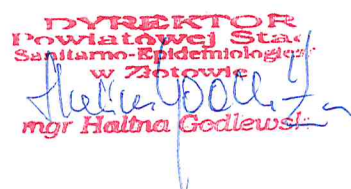 DYREKTOR
Powiatowej Sta
Sanitarno-Epidemiologicz
w Złotowie
mgr Halina Godlewsk